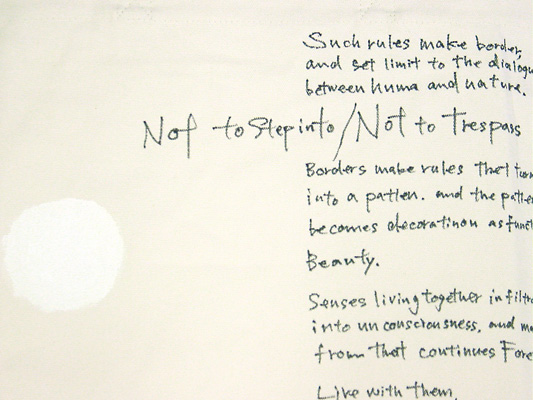 Such rules make border,
and set limit to the dialogu
between huma and nature.
Not to Step into / Not to Trespass
Borders make rules that turn
into a patten. and the patten
becomes decoratinon as funct
Beauty.
Senses living together in filtr
into un consciousness, and m
from that continues Fore
Live with them.